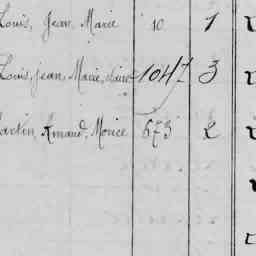 Louis, Jean, Marie 10 1
Louis, Jean, Marie, 1047 3
Martin, Armand, Morice 673 2